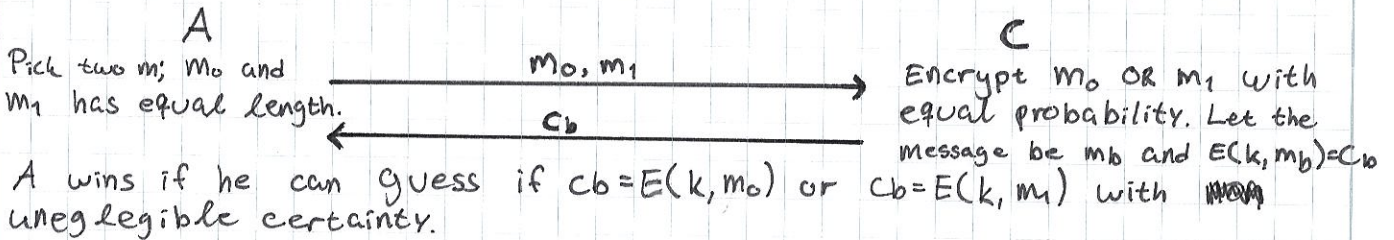 A
C
Pick two m; m0 and
m1 has equal length.
m0, m1
cb
Encrypt m0 OR m1 with
equal probability. Let the
message be mb and E(k, mb)=Cb
A wins if he can guess if cb = E(k, m0) or cb = E(k, m1) with
uneglegible certainty.